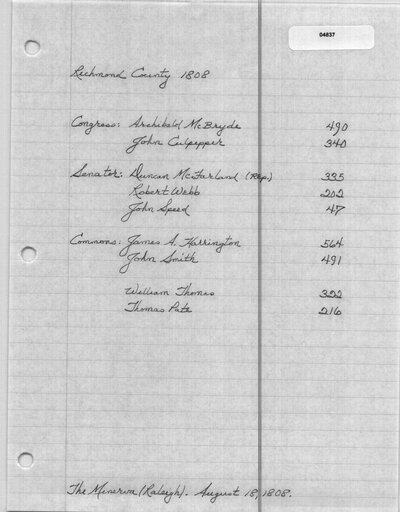 04837
Richmond County 1808
Congress: Archibald McBryde 490
John Culpepper 340
Senator: Duncan McFarland (Rep.) 335
Robert Webb 202
John Speed 47
Commons: James A. Harrington 564
John Smith 491
William Thomas 322
Thomas Pate 216
The Minerva (Raleigh). August 18, 1808.